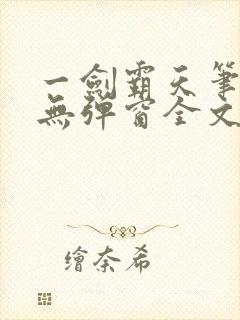 一劍霸天筆
無彈窗全文
繪奈希